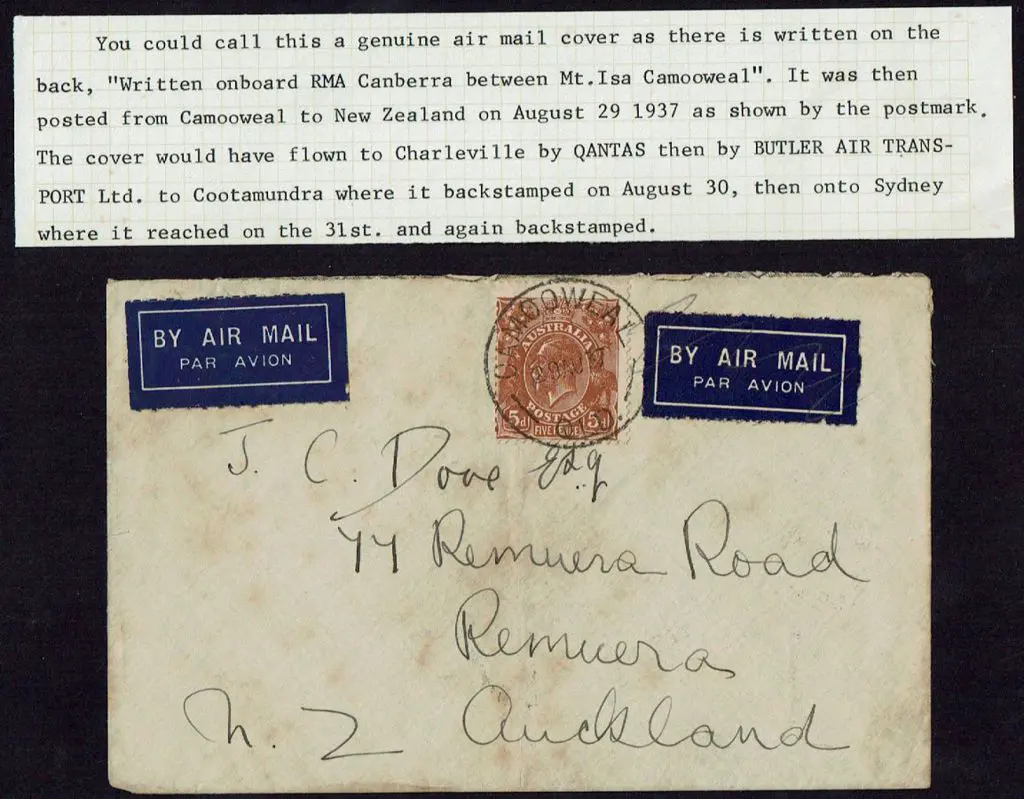 You could call this a genuine air mail cover as there is written on the
back, "Written onboard RMA Canberra between Mt.Isa Camooweal". It was then
posted from Camooweal to New Zealand on August 29 1937 as shown by the postmark.
The cover would have flown to Charleville by QANTAS then by BUTLER AIR TRANS-
PORT Ltd. to Cootamundra where it backstamped on August 30, then onto Sydney
where it reached on the 31st. and again backstamped.
BY AIR MAIL
PAR AVION
CAMOOWEAL
AUSTRALIA
POSTAGE
5d FIVE PENCE 5d
BY AIR MAIL
PAR AVION
J. C. Dove Esq
77 Remuera Road
Remuera
N. Z Auckland